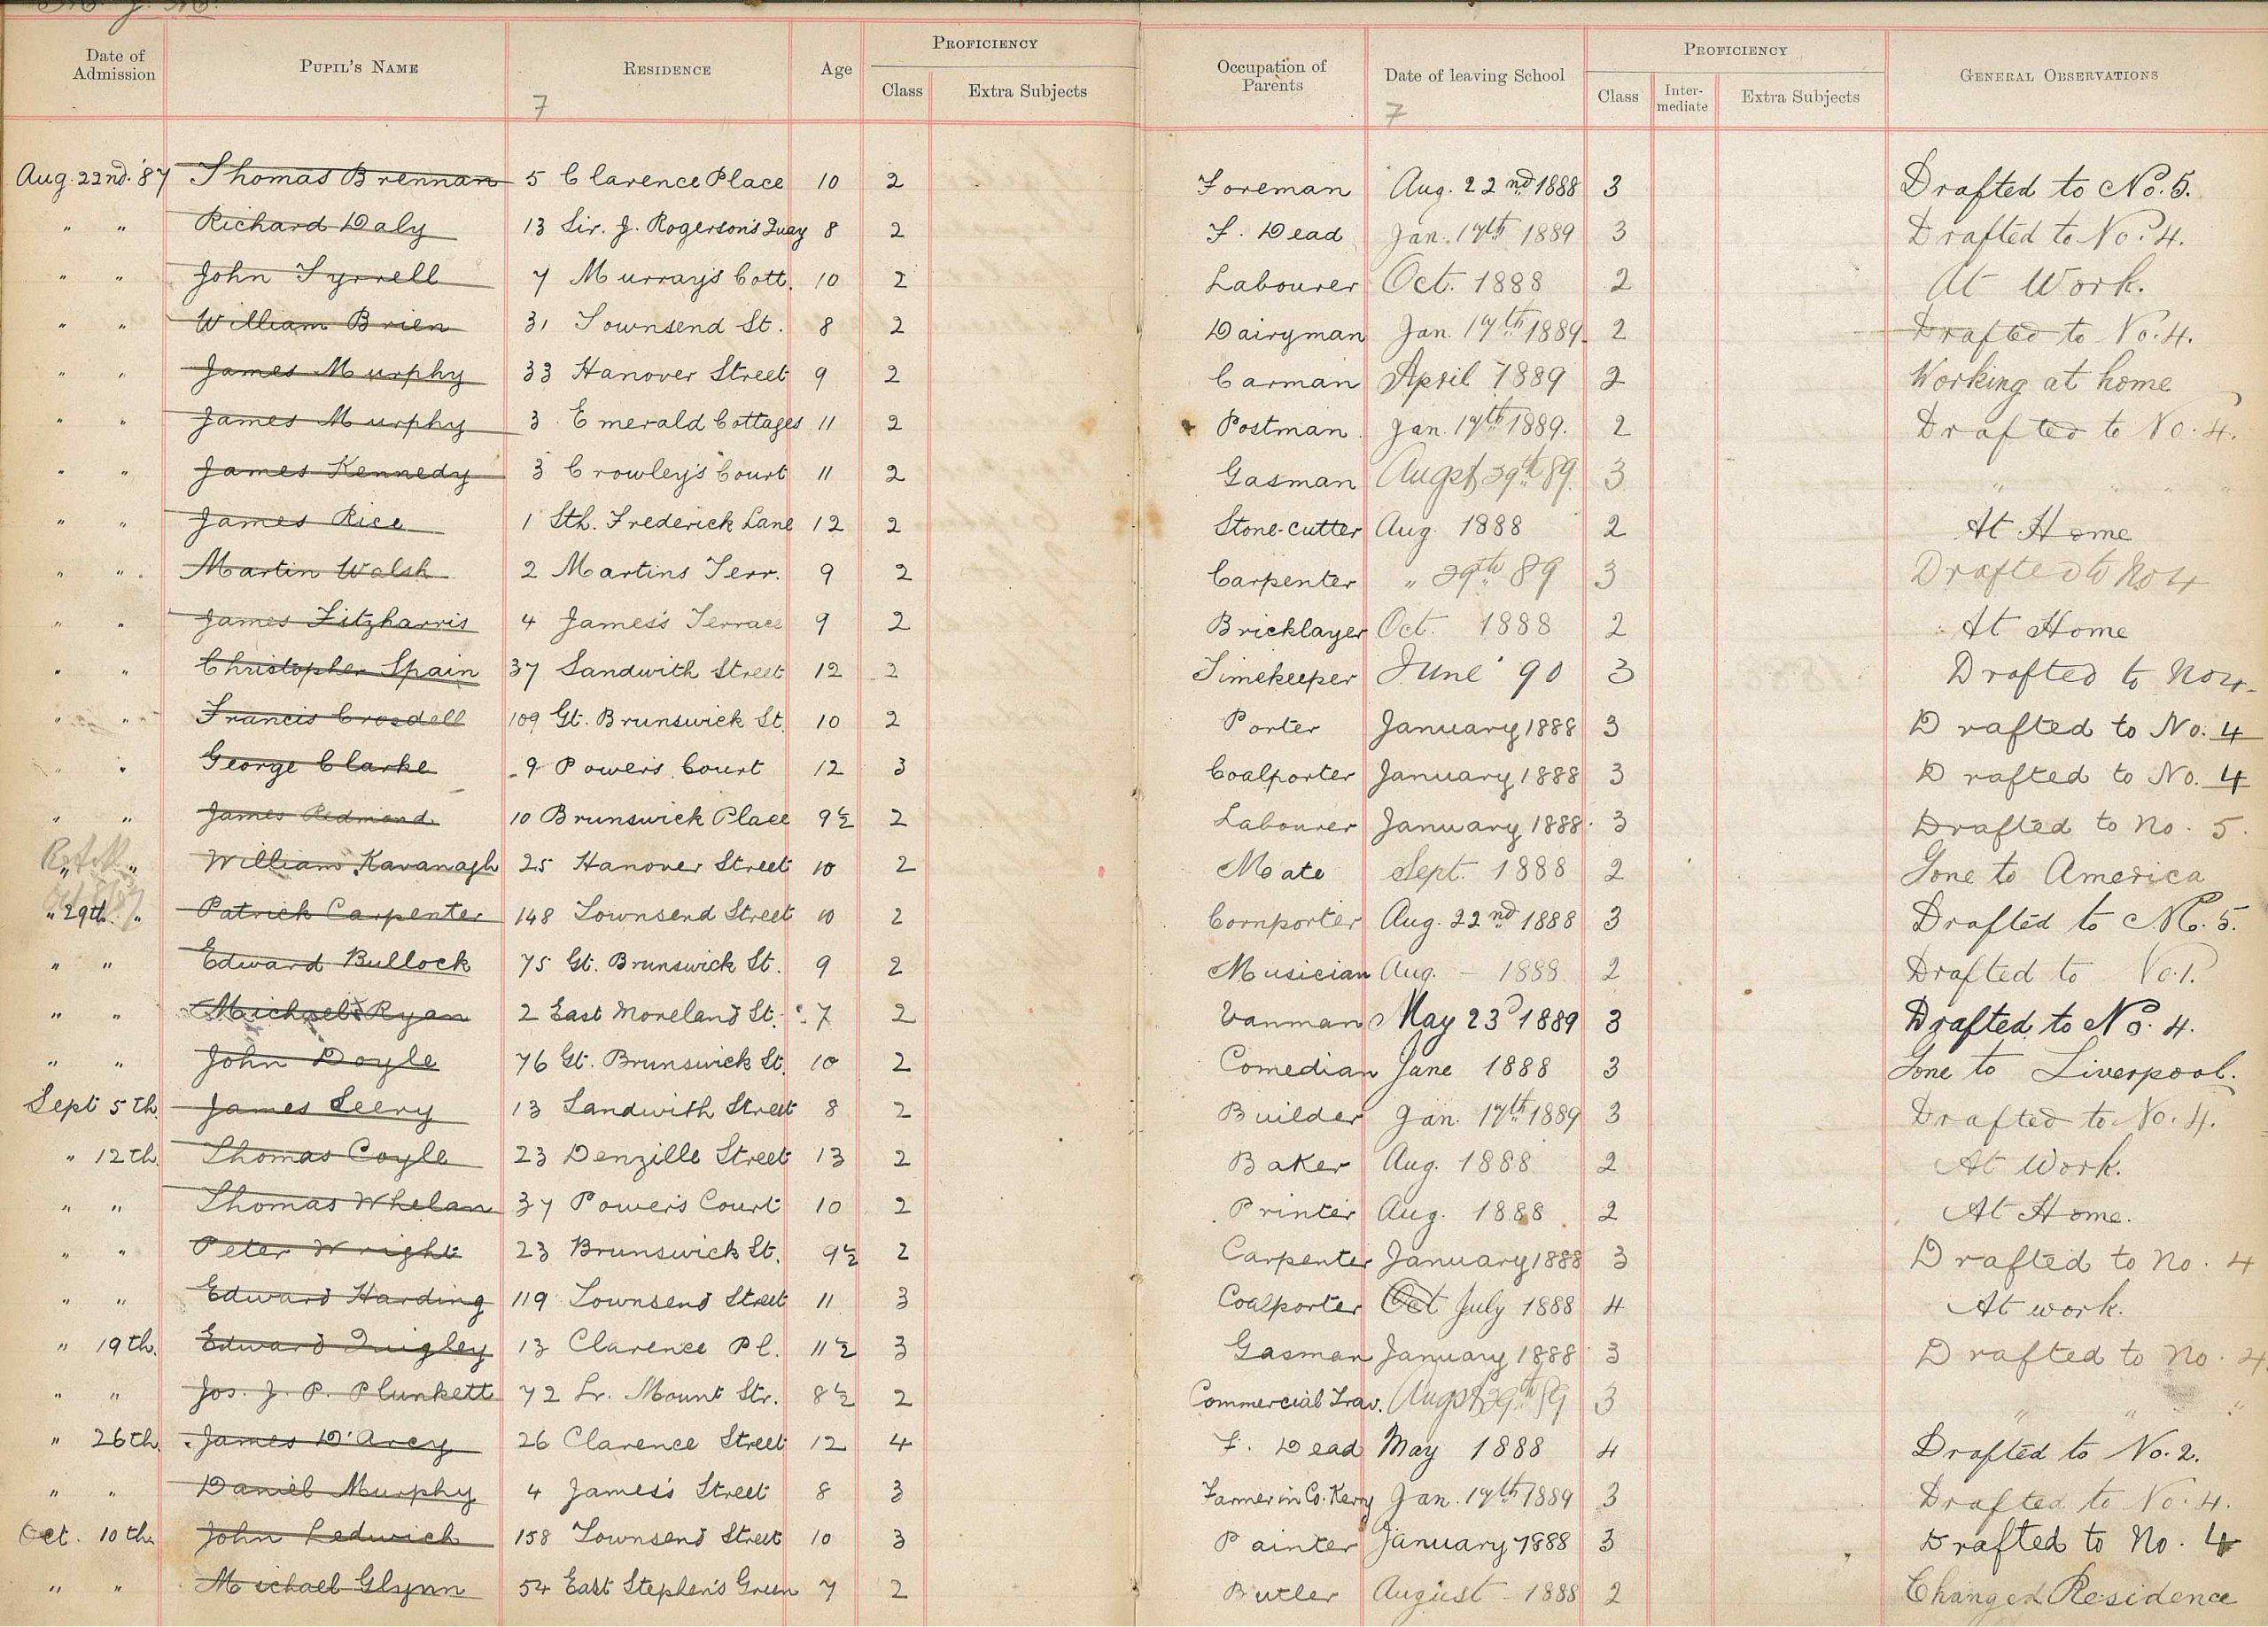 Date of Admission PUPIL'S NAME RESIDENCE Age PROFICIENCY Class Extra Subjects Occupation of Parents Date of leaving School PROFICIENCY Class Inter-mediate Extra Subjects GENERAL OBSERVATIONS
7 7
Aug. 22nd. '87 Thomas Brennan 5 Clarence Place 10 2 Foreman Aug. 22nd 1888 3 Drafted to No. 5.
" " Richard Daly 13 Sir. J. Rogerson's Quay 8 2 F. Dead Jan. 17th 1889 3 Drafted to No. 4.
" " John Tyrrell 7 Murray's Cott. 10 2 Labourer Oct. 1888 2 At Work.
" " William Brien 31 Townsend St. 8 2 Dairyman Jan. 17th 1889. 2 Drafted to No. 4.
" " James Murphy 33 Hanover Street 9 2 Carman April 1889 2 Working at home
" " James Murphy 3 Emerald Cottages 11 2 Postman. Jan. 17th 1889. 2 Drafted to No. 4.
" " James Kennedy 3 Crowley's Court 11 2 Gasman Augst 29th 89. 3 " " " "
" " James Rice 1 Sth. Frederick Lane 12 2 Stone-cutter Aug. 1888 2 At Home
" " Martin Walsh 2 Martins Terr. 9 2 Carpenter " 29th 89 3 Drafted to No 4
" " James Fitzharris 4 James's Terrace 9 2 Bricklayer Oct. 1888 2 At Home
" " Christopher Spain 37 Sandwith Street 12 2 Timekeeper June '90 3 Drafted to No 4.
" " Francis Crosdell 109 Gt. Brunswick St. 10 2 Porter January 1888 3 Drafted to No. 4
" " George Clarke 9 Power's Court 12 3 Coalporter January 1888 3 Drafted to No. 4
" " James Redmond 10 Brunswick Place 9½ 2 Labourer January 1888. 3 Drafted to No. 5.
" " William Kavanagh 25 Hanover Street 10 2 Mate Sept. 1888 2 Gone to America
" 29th. " Patrick Carpenter 148 Townsend Street 10 2 Cornporter Aug. 22nd 1888 3 Drafted to No. 5.
" " Edward Bullock 75 Gt. Brunswick St. 9 2 Musician Aug. - 1888 2 Drafted to No. 1.
" " Michael Ryan 2 East Moreland St. 7 2 Vanman May 23d 1889 3 Drafted to No. 4.
" " John Doyle 76 Gt. Brunswick St. 10 2 Comedian June 1888 3 Gone to Liverpool.
Sept 5th. James Seery 13 Sandwith Street 8 2 Builder Jan. 17th 1889 3 Drafted to No. 4.
" 12th. Thomas Coyle 23 Denzille Street 13 2 Baker Aug. 1888 2 At Work.
" " Thomas Whelan 37 Power's Court 10 2 Printer Aug. 1888 2 At Home.
" " Peter Wright 23 Brunswick St. 9½ 2 Carpenter January 1888 3 Drafted to No. 4
" " Edward Harding 119 Townsend Street 11 3 Coalporter Oct July 1888 4 At work.
" 19th. Edward Quigley 13 Clarence Pl. 11½ 3 Gasman January 1888 3 Drafted to No. 4
" " Jos. J. P. Plunkett 72 Lr. Mount Str. 8½ 2 Commercial Trav. Augst 29th 89 3 " " "
" 26th. James D'Arcy 26 Clarence Street 12 4 F. Dead May 1888 4 Drafted to No. 2.
" " Daniel Murphy 4 James's Street 8 3 Farmer in Co. Kerry Jan. 17th 1889 3 Drafted to No. 4.
Oct. 10th. John Ledwich 158 Townsend Street 10 3 Painter January 1888 3 Drafted to No. 4
" " Michael Glynn 54 East Stephen's Green 7 2 Butler August - 1888 2 Changed Residence